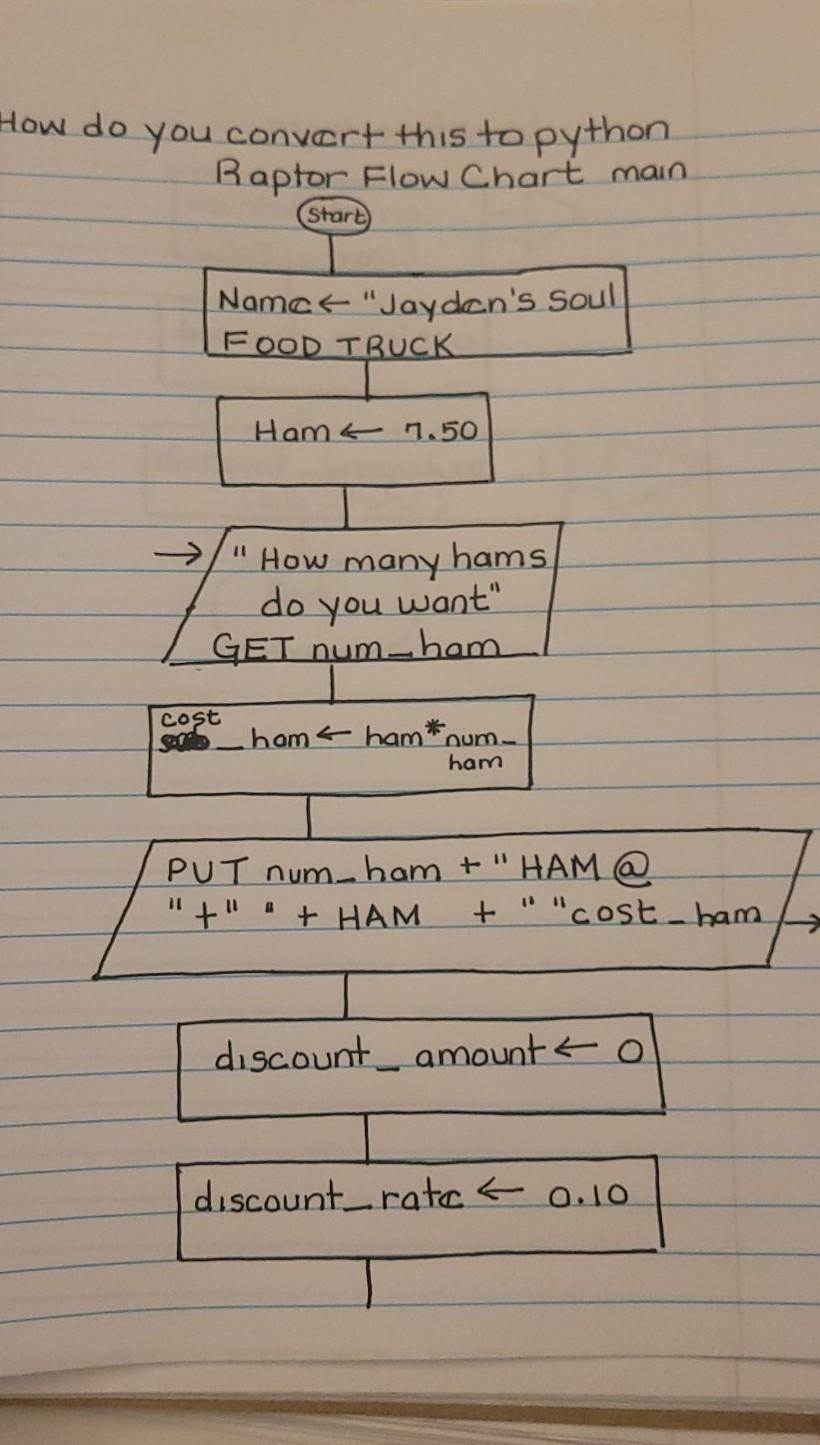 How do you convert this to python
Raptor Flow Chart main
Start
Name ← "Jayden's Soul
FOOD TRUCK
Ham ← 7.50
→ "How many hams
do you want"
GET num_ham
cost
_ham ← ham*num_
ham
PUT num_ham + "HAM @
"+" " + HAM + " "cost_ham →
discount_amount ← 0
discount_rate ← 0.10